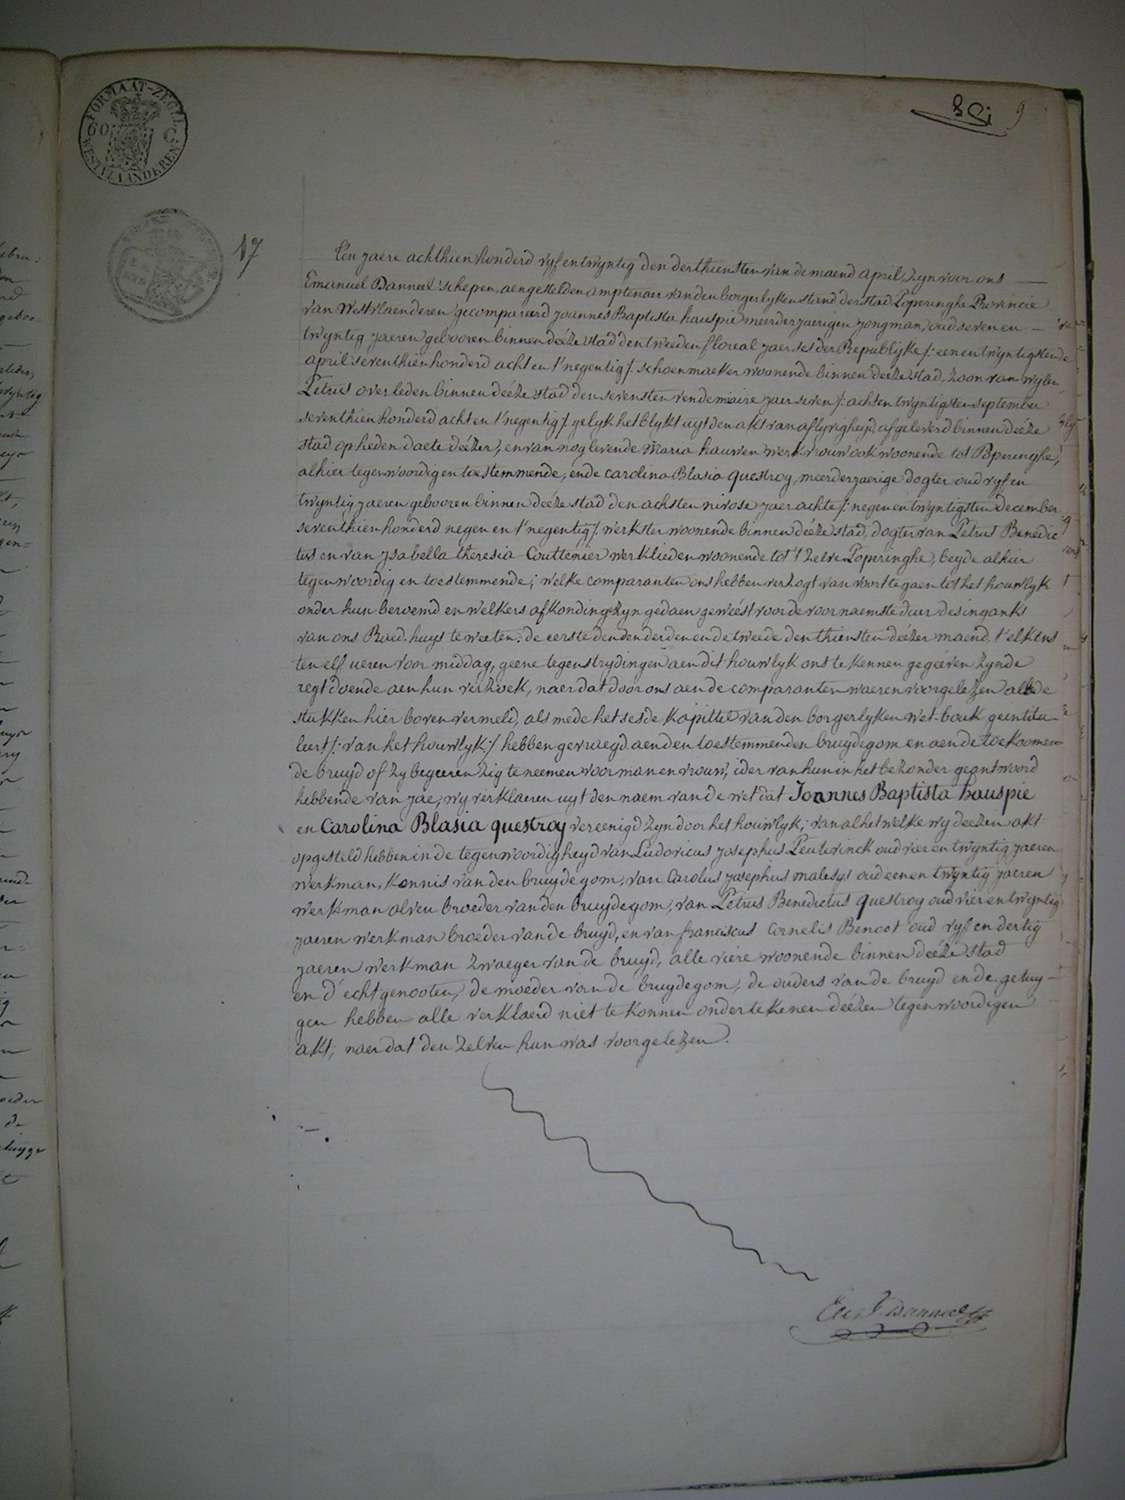 FORMAAT-ZEGEL
60 C
WESTVLAANDEREN
9
17
Ten jaere achthien honderd vyf en twyntig den derthiensten van de maend april, zyn voor ons
Emanuel Danneel schepen, aengestelden amptenaer van den borgerlyken stand der stad Poperinghe Provincie
van Westvlaenderen gecompareerd Joannes Baptista hauspie meerderjaerigen jongman, oud seven en
twyntig jaeren gebooren binnen deéze stad den tweeden floreal jaer ses der Republyke /: eenentwyntigste
april seventhien honderd acht en t'negentig/: schoenmaeker woonende binnen deeze stad, zoon van wylen
Petrus overleden binnen deéze stad den sevensten vendemiaire jaer seven /: achtentwyntigsten september
seventhien honderd acht en t'negentig/: gelyk het blykt uyt den akt van aflyvigheyd afgeleverd binnen deéze
stad op heden daete deézer, en van nog levende Maria hauwen werkvrouw ook woonende tot Poperinghe,
alhier tegenwoordig en toestemmende, ende Carolina Blasia Questroy, meerderjaerige dogter oud vyf en
twyntig jaeren gebooren binnen deéze stad den achsten nivose jaer achte /: negenentwyntigsten december
seventhien honderd negen en t'negentig/: werkster woonende binnen deéze stad, dogter van Petrus Benedic
tus en van ysabella theresia Couttenier werklieden woonende tot 't zelve Poperinghe, beyde alhier
tegenwoordig en toestemmende; welke comparanten ons hebben verzogt van voort te gaen tot het houwlyk
onder hun beroemd en welkers afkondingen zyn gedaen geweést voor de voornaemste deur des ingank's
van ons Raed-huys te weeten: de eerste den derden ende tweede den thiensten deézer maend t'elkens
ten elf ueren voor middag, geene tegenstrydingen aen dit houwlyk ons te kennen gegeéven zynde
regt doende aen hun verzoek, naer dat door ons aen de comparanten waeren voorgelezen alle de
stukken hier boven vermeld, als mede het sesde kapittel van den borgerlyken wet-bouk geintitu
leert /: van het houwlyk :/ hebben gevraegd aen den toestemmenden bruydegom en aen de toekoomen
de bruyd of zy begeeren zig te neemen voor man en vrouw, ider van hun in het bezonder geantwoord
hebbende van jae, wy verklaeren uyt den naem van de wet dat Joannes Baptista hauspie
en Carolina Blasia questroy vereenigd zyn door het houwlyk; van al het welke wy deézen akt
opgesteld hebben in de tegenwoordigheyd van Ludovicus Josephus Peuterinck oud vier en twyntig jaeren
werkman, kennis van den bruydegom, van Carolus Josephus malesys oud een en twyntig jaeren
werkman alven broeder van den bruydegom, van Petrus Benedictus Questroy oud vier en twyntig
jaeren werkman broeder van de bruyd, en van franciscus Cornelis Benoot oud vyf en dertig
jaeren werkman zwaeger van de bruyd, alle viere woonende binnen deéze stad
en d'echtgenooten, de moeder van de bruydegom, de ouders van de bruyd en de getuy-
gen hebben alle verklaerd niet te konnen onderteekenen deézen tegenwoordigen
akt, naer dat den zelven hun was voorgelezen.
Danneel